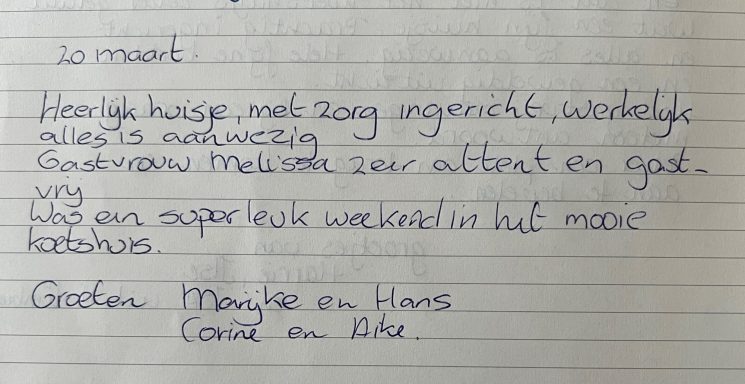 20 maart.
Heerlijk huisje, met zorg ingericht, werkelijk
alles is aanwezig
Gastvrouw Melissa zeer attent en gast-
vrij
Was een super leuk weekend in het mooie
koetshuis.
Groeten Marijke en Hans
Corine en Aike.